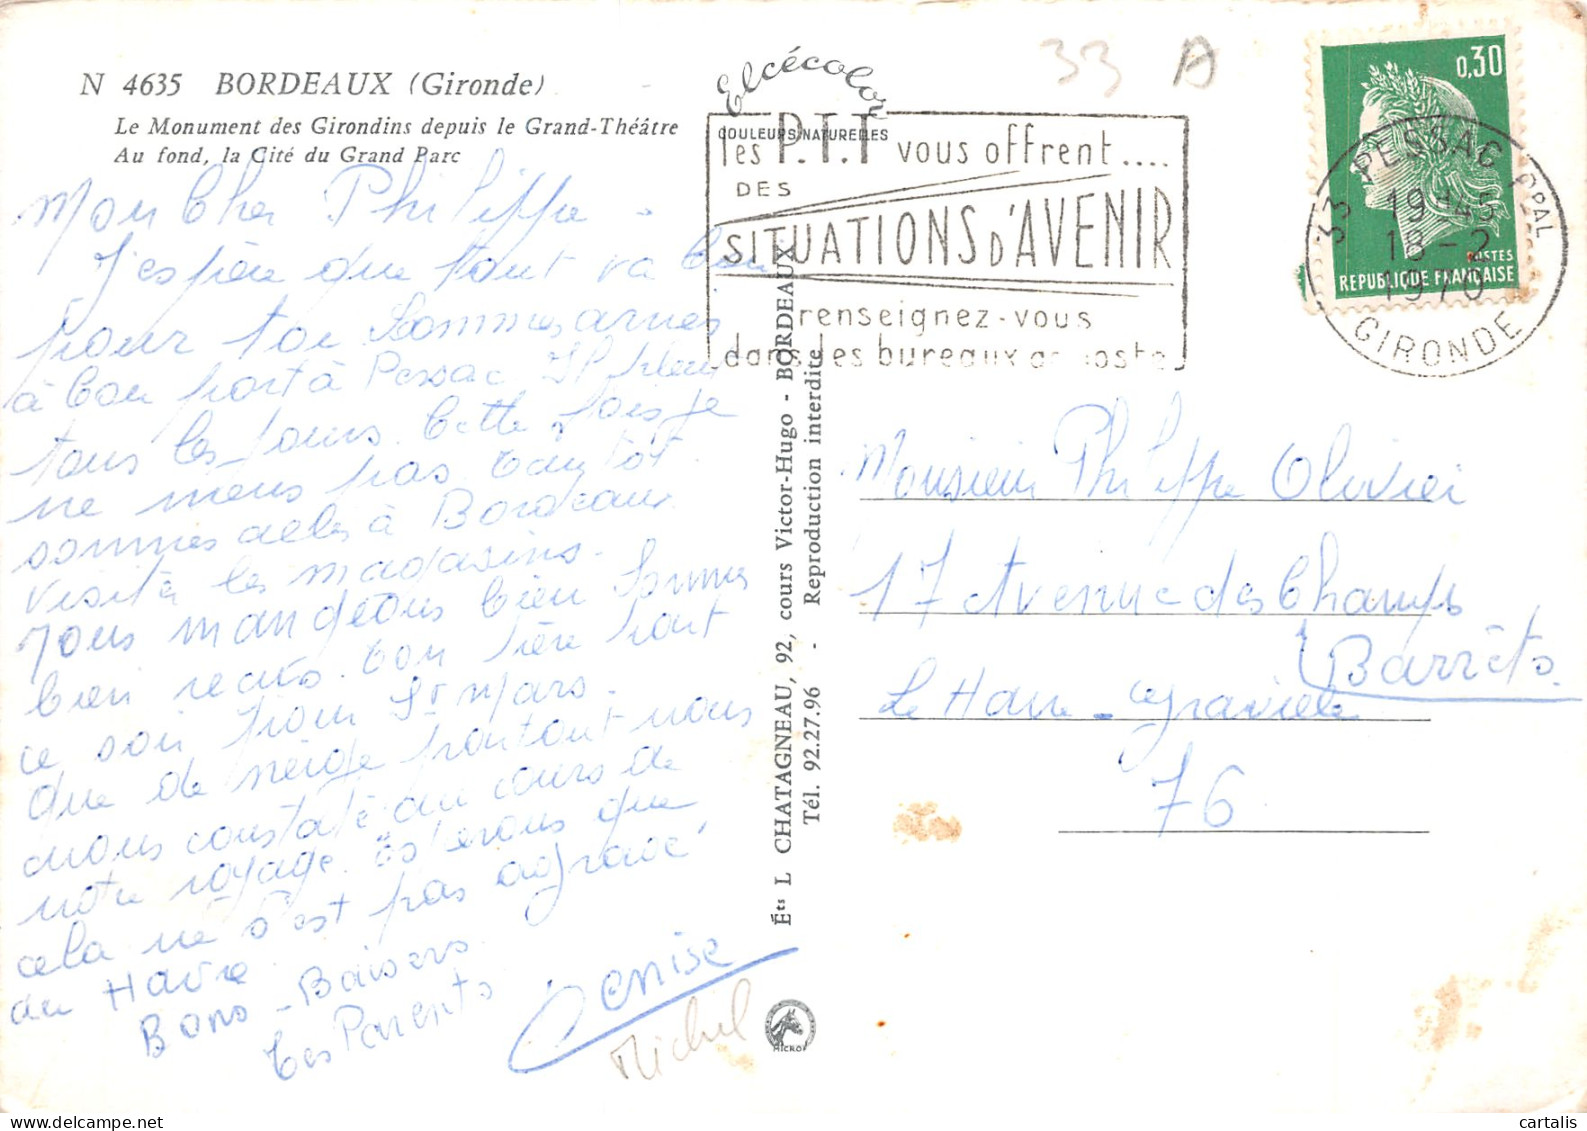 N 4635 BORDEAUX (Gironde)
Le Monument des Girondins depuis le Grand-Théâtre
Au fond, la Cité du Grand Parc
Mon Cher Philippe -
J'espère que tout va bien
pour toi Sommes arrivés
à bon port à Pessac. Il pleut
tous les jours. Cette fois je
ne mens pas. Tantôt
sommes allés à Bordeaux
visité les magasins.
Nous mangeons bien Sommes
bien reçus. Ton père part
ce soir pour St Mars.
que de neige partout nous
avons constaté au cours de
notre voyage. Espérons que
cela ne s'est pas aggravé
au Havre.
Bons - Baisers
Tes Parents
Denise
Michel
Elcécolor
COULEURS NATURELLES
Éts L CHATAGNEAU, 92, cours Victor-Hugo - BORDEAUX
Tél. 92.27.96 - Reproduction interdite
MICRO
33 A
les P.T.T vous offrent....
DES
SITUATIONS D'AVENIR
renseignez-vous
dans les bureaux de poste
0,30
POSTES
REPUBLIQUE FRANÇAISE
33 PESSAC PPAL
19H45
18-2
1970
GIRONDE
Monsieur Philippe Olivier
17 Avenue des Champs
Barrets
Le Havre - Graville
76
cartalis